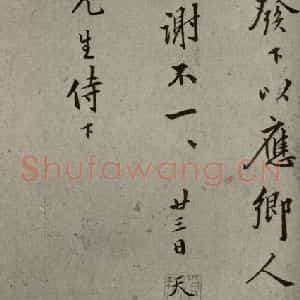 發下以應鄉人
謝不一、
廿三日
先生侍下
天
Shufawang.CN